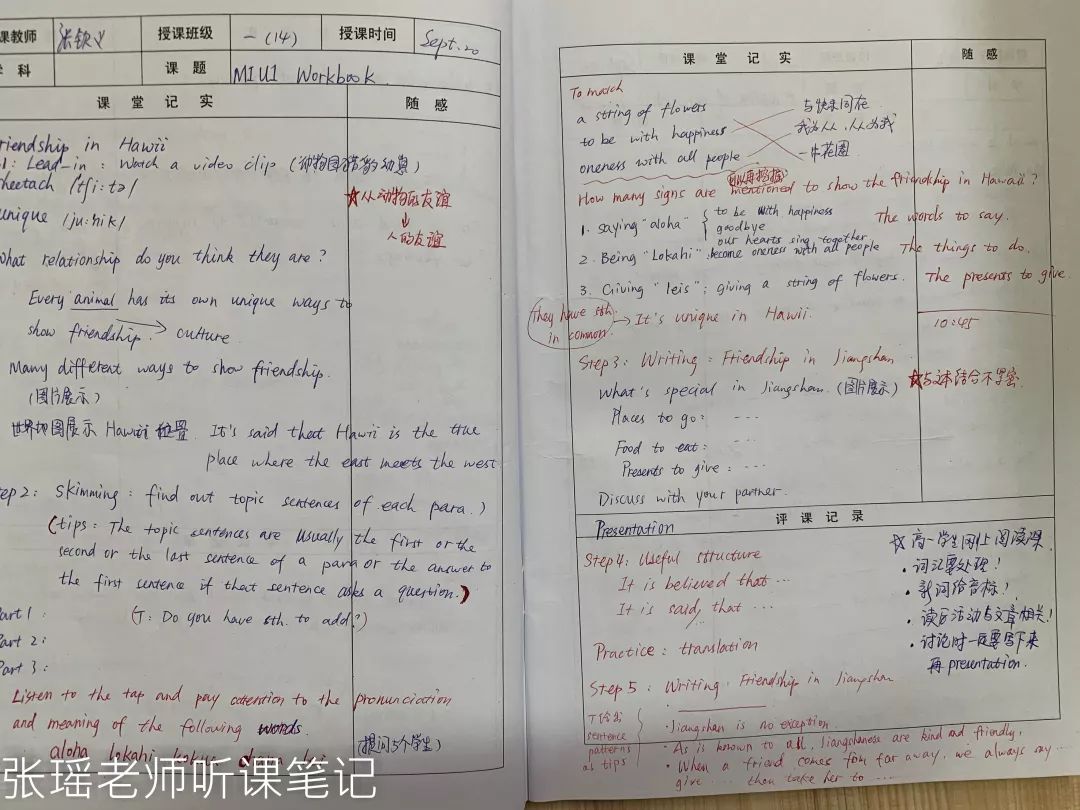 课教师 张钦义 授课班级 一(14) 授课时间 Sept.20
学 科 课 题 M1U1 Workbook
课 堂 记 实 随 感
riendship in Hawii
1: Lead_in: Watch a video clip (动物园 的动患)
heetach /tʃi:tə/
unique /ju:nik/
★从动物的友谊
↓
人的友谊
What relationship do you think they are?
Every animal has its own unique ways to
show friendship. → culture
Many different ways to show friendship.
(图片展示)
世界地图展示 Hawaii 位置. It's said that Hawii is the true
place where the east meets the west
ep2: Skimming: find out topic sentences of each para.)
(tips: The topic sentences are usually the first or the
second or the last sentence of a para or the answer to
the first sentence if that sentence asks a question.)
Part 1: (T: Do you have sth. to add?)
Part 2:
Part 3:
Listen to the tap and pay attention to the pronunciation
and meaning of the following words.
(提问5个学生)
aloha lokahi kokua
张瑶老师听课笔记
课 堂 记 实 随 感
To match
a string of flowers 与快乐同在
to be with happiness 我为人人,人人为我
oneness with all people 一串花圈
可以再挖掘
How many signs are mentioned to show the friendship in Hawaii?
1. Saying "aloha" { to be with happiness The words to say.
goodbye
our hearts sing together
2. Being "Lokahi": become oneness with all people The things to do.
3. Giving "leis": giving a string of flowers. The presents to give.
They have sth. in common. → It's unique in Hawii.
10:45
Step3: Writing: Friendship in Jiangshan
What's special in Jiangshan. (图片展示) ★与文本结合不紧密.
Places to go: ---
Food to eat: ---
Presents to give: ---
Discuss with your partner.
评 课 记 录
Presentation
Step4: Useful structure
It is believed that ...
It is said that ...
Practice: translation
☆ 高一学生刚上阅读课.
· 词汇要处理!
· 新词给音标!
· 读后活动与文章相关!
· 讨论时一定要写下来
再 presentation.
Step 5: Writing: Friendship in Jiangshan
T给出 sentence patterns as tips
· Jiangshan is no exception.
· As is known to all, Jiangshanese are kind and friendly,
· When a friend comes from far away, we always say ...
give ... then take her to ...